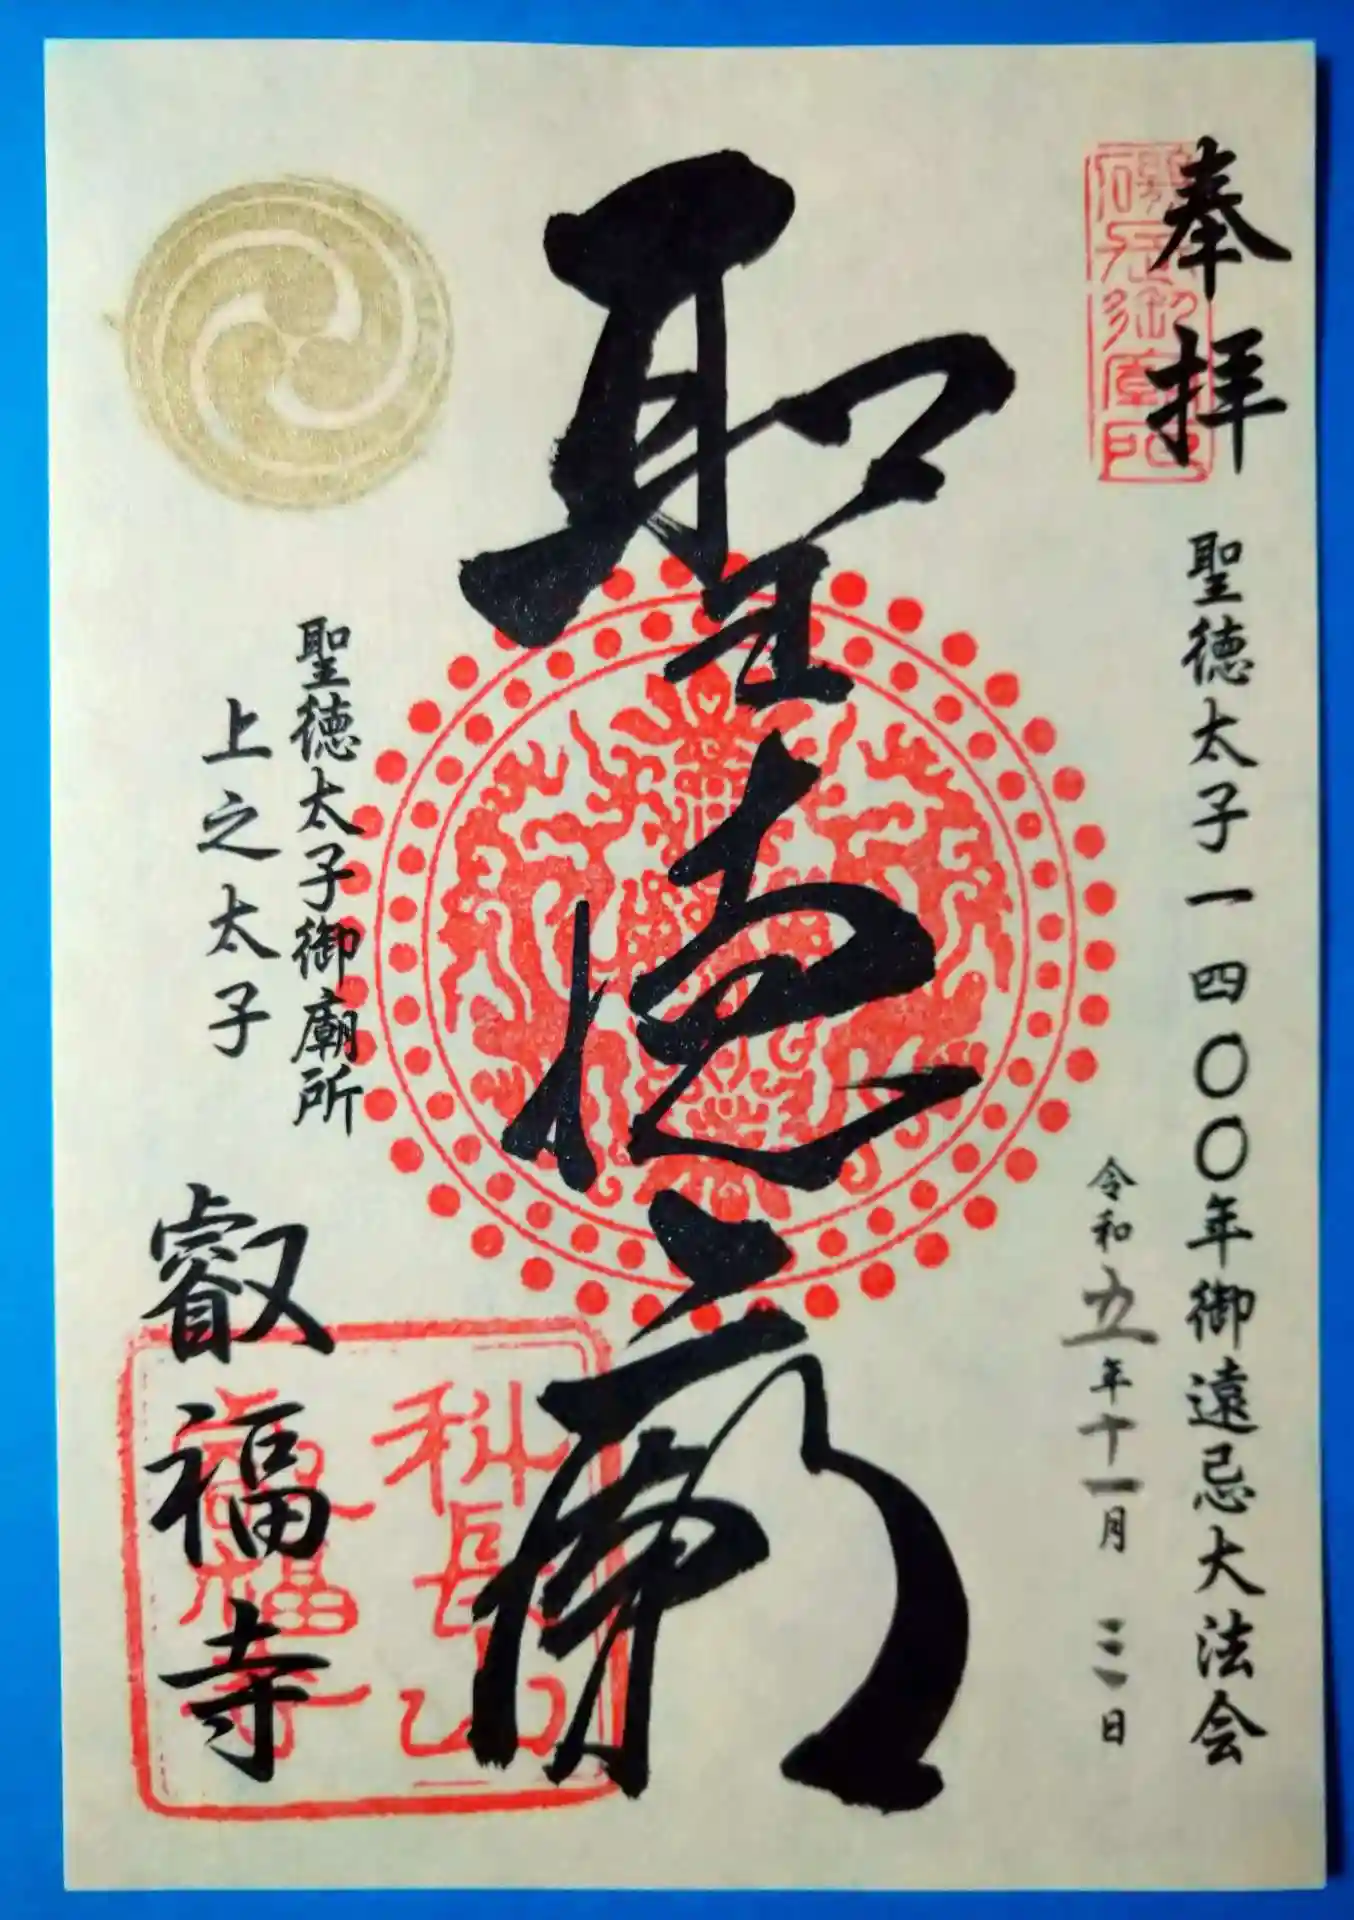 奉拝
磯長御廟
聖徳太子一四〇〇年御遠忌大法会
令和五年十一月三日
聖徳廟
聖徳太子御廟所
上之太子
叡福寺
科長山
叡福寺